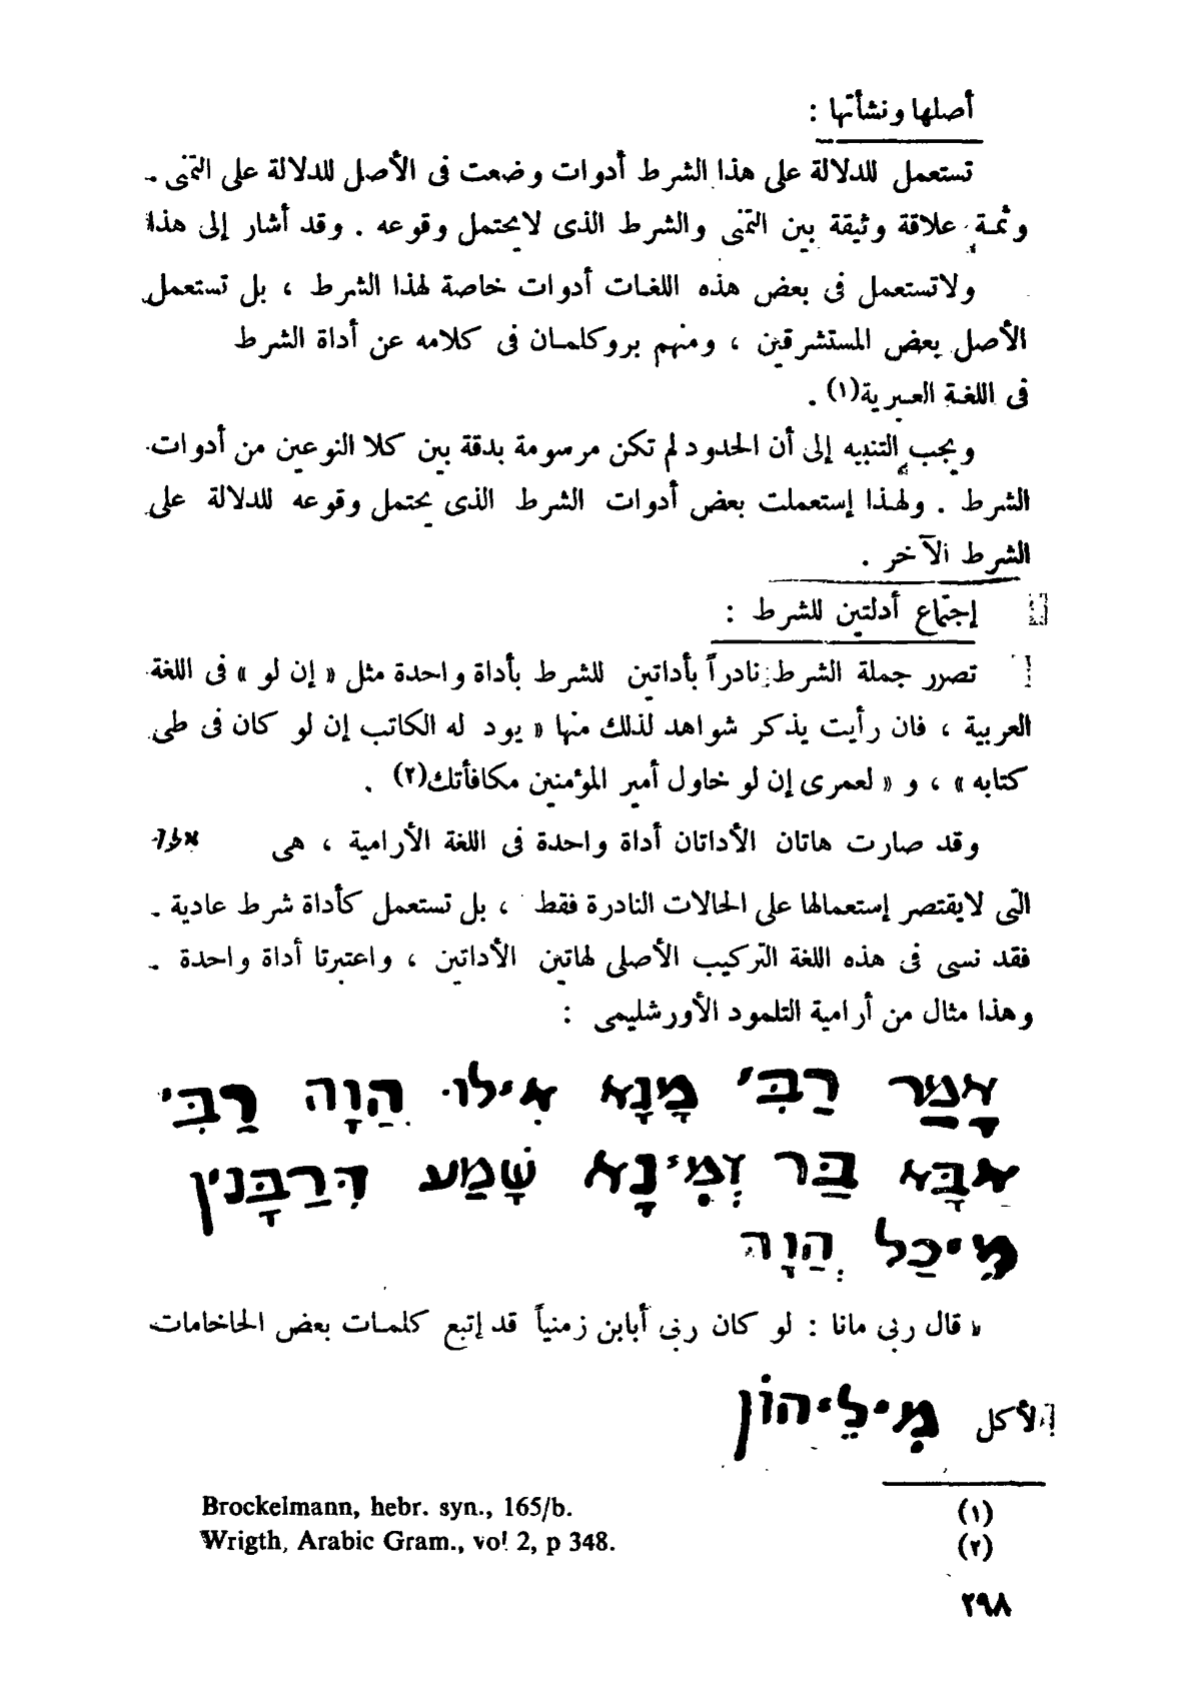 أصلها ونشأتها :
تستعمل للدلالة على هذا الشرط أدوات وضعت فى الأصل للدلالة على التمنى ـ
وثمة علاقة وثيقة بين التمنى والشرط الذى لايحتمل وقوعه . وقد أشار إلى هذا
ولاتستعمل فى بعض هذه اللغات أدوات خاصة لهذا الشرط ، بل تستعمل
الأصل بعض المستشرقين ، ومنهم بروكلمان فى كلامه عن أداة الشرط
فى اللغة العبرية(١) .
ويجب التنبيه إلى أن الحدود لم تكن مرسومة بدقة بين كلا النوعين من أدوات
الشرط . ولهذا إستعملت بعض أدوات الشرط الذى يحتمل وقوعه للدلالة على
الشرط الآخر .
إجتماع أدلتين للشرط :
تصرر جملة الشرط نادراً بأداتين للشرط بأداة واحدة مثل « إن لو » فى اللغة
العربية ، فان رأيت يذكر شواهد لذلك منها « يود له الكاتب إن لو كان فى طى
كتابه » ، و « لعمرى إن لو حاول أمير المؤمنين مكافأتك(٢) .
وقد صارت هاتان الأداتان أداة واحدة فى اللغة الأرامية ، هى
التى لايقتصر إستعمالها على الحالات النادرة فقط ، بل تستعمل كأداة شرط عادية ـ
فقد نسى فى هذه اللغة التركيب الأصلى لهاتين الأداتين ، واعتبرتا أداة واحدة ـ
وهذا مثال من أرامية التلمود الأورشليمى :
אָמַר רַבִּי מָנָא אִילוּ הֲוָה רַבִּי
אַבָּא בַּר זְמִינָא שָׁמַע דְּרַבָּנִין
מֵיכַל הֲוָה
« قال ربى مانا : لو كان ربى أبابن زمنياً قد إتبع كلمات بعض الحاخامات
لأكل מִילֵיהוֹן
(١) Brockelmann, hebr. syn., 165/b.
(٢) Wrigth, Arabic Gram., vol 2, p 348.
٢٩٨